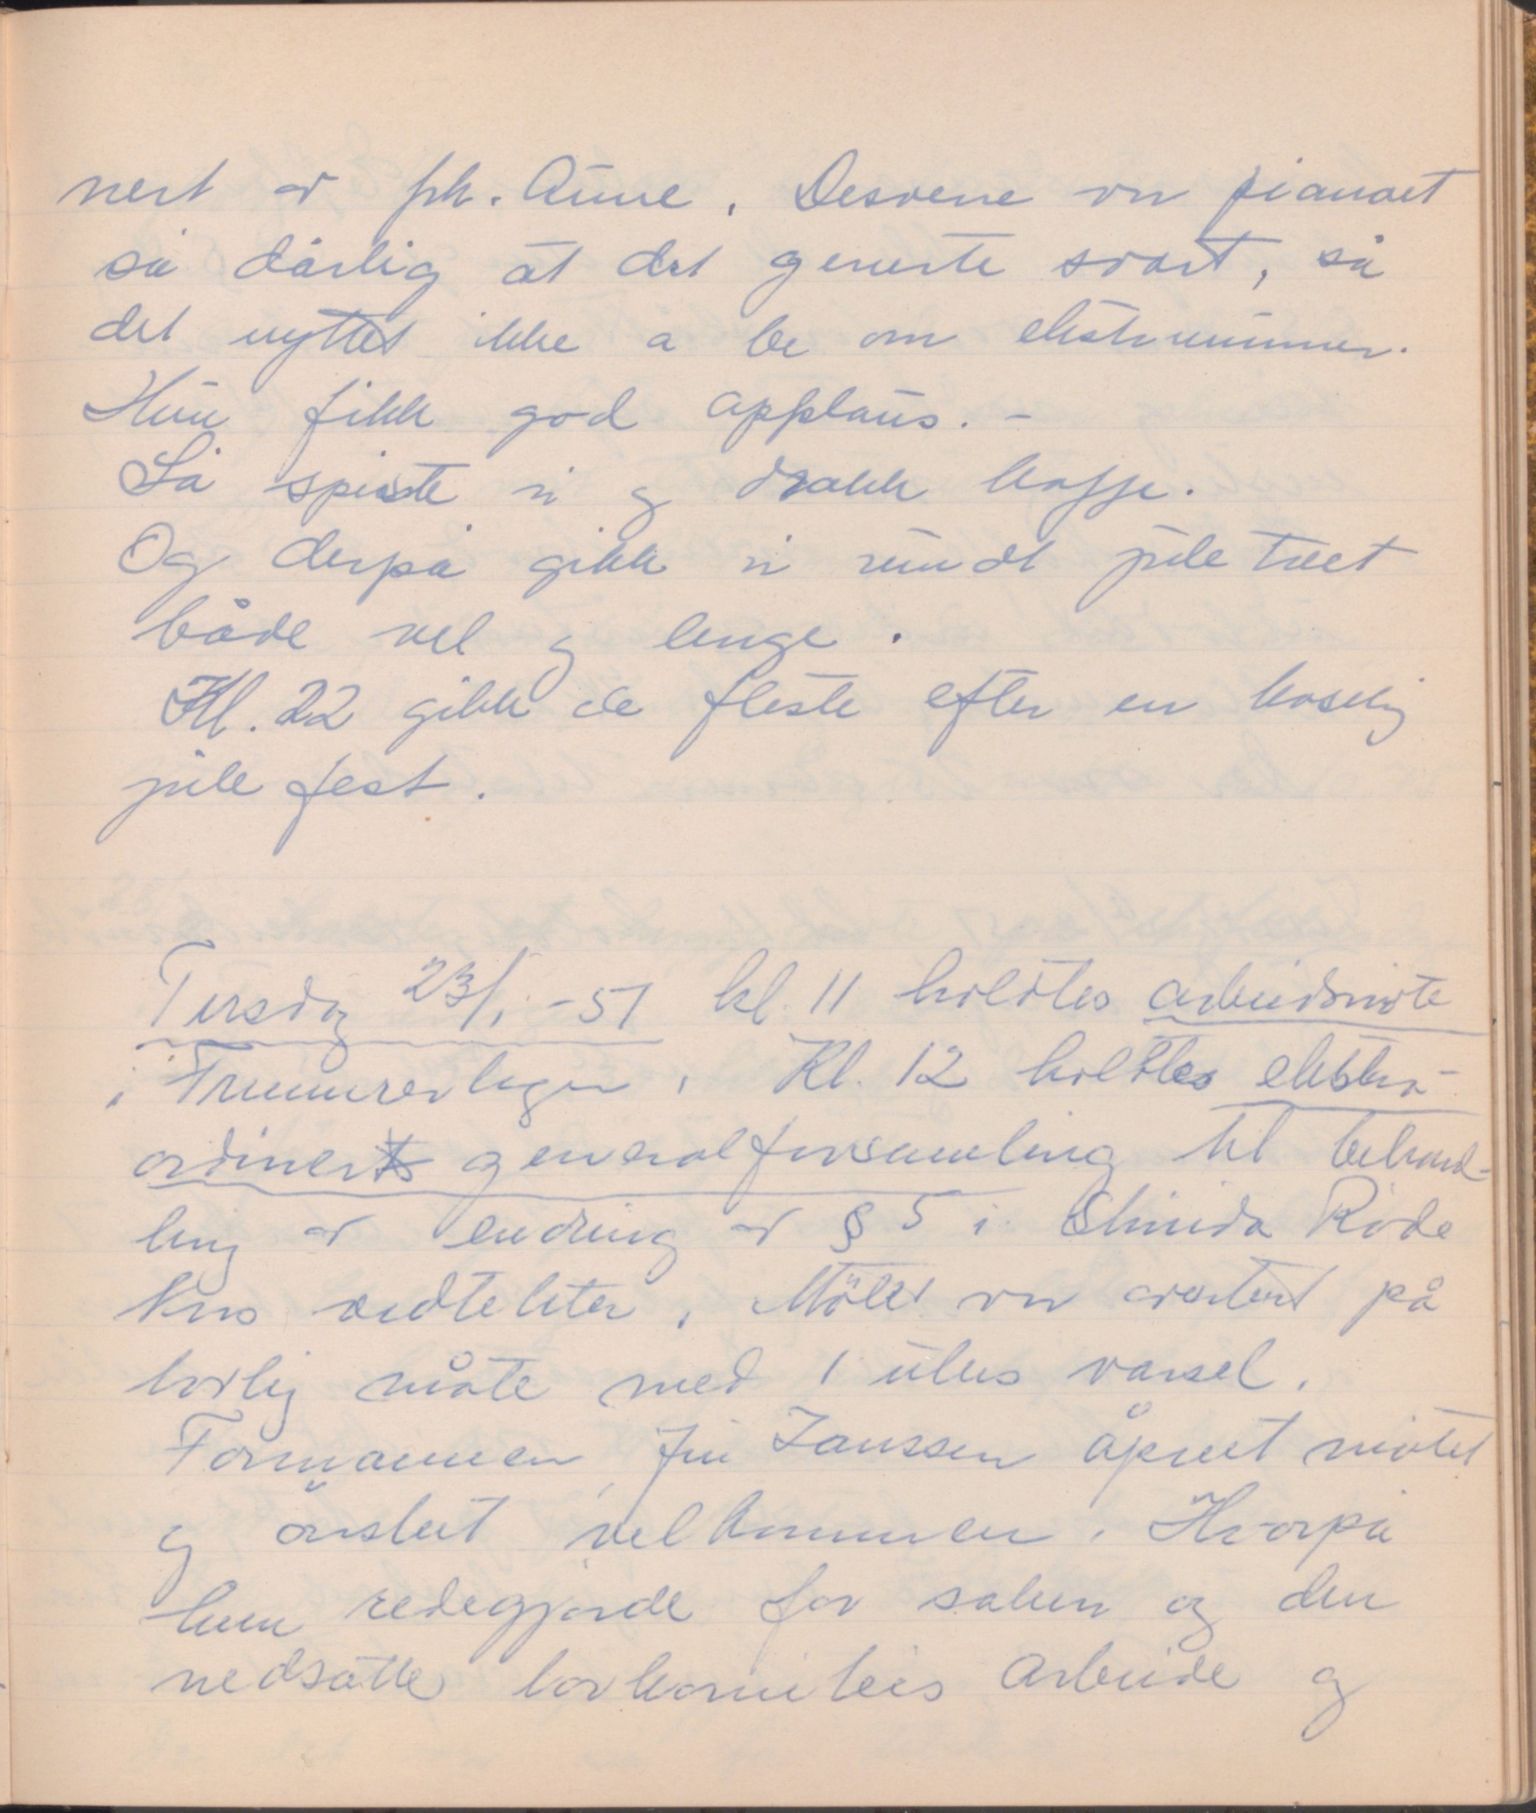 nert av frk. Aune. Desverre var pianoet
så dårlig at det generte svært, så
det nyttet ikke å be om ekstranummer.
Hun fikk god applaus. -
Så spiste vi og drakk kaffe.
Og derpå gikk vi rundt juletreet
både vel og lenge.
Kl. 22 gikk de fleste efter en koselig
julefest.
Tirsdag 23/1 -51 kl. 11 holdtes arbeidsmøte
i Frimurerlogen. Kl. 12 holdtes ekstra-
ordinert generalforsamling til behand-
ling av endring av § 5 i Røde
Kors vedtekter. Møtet var averteret på
lovlig måte med 1 ukes varsel.
Formannen, fru Janssen åpnet møtet
og ønsket velkommen. Hvorpå
hun redegjorde for saken og den
nedsatte lovkomites arbeide og